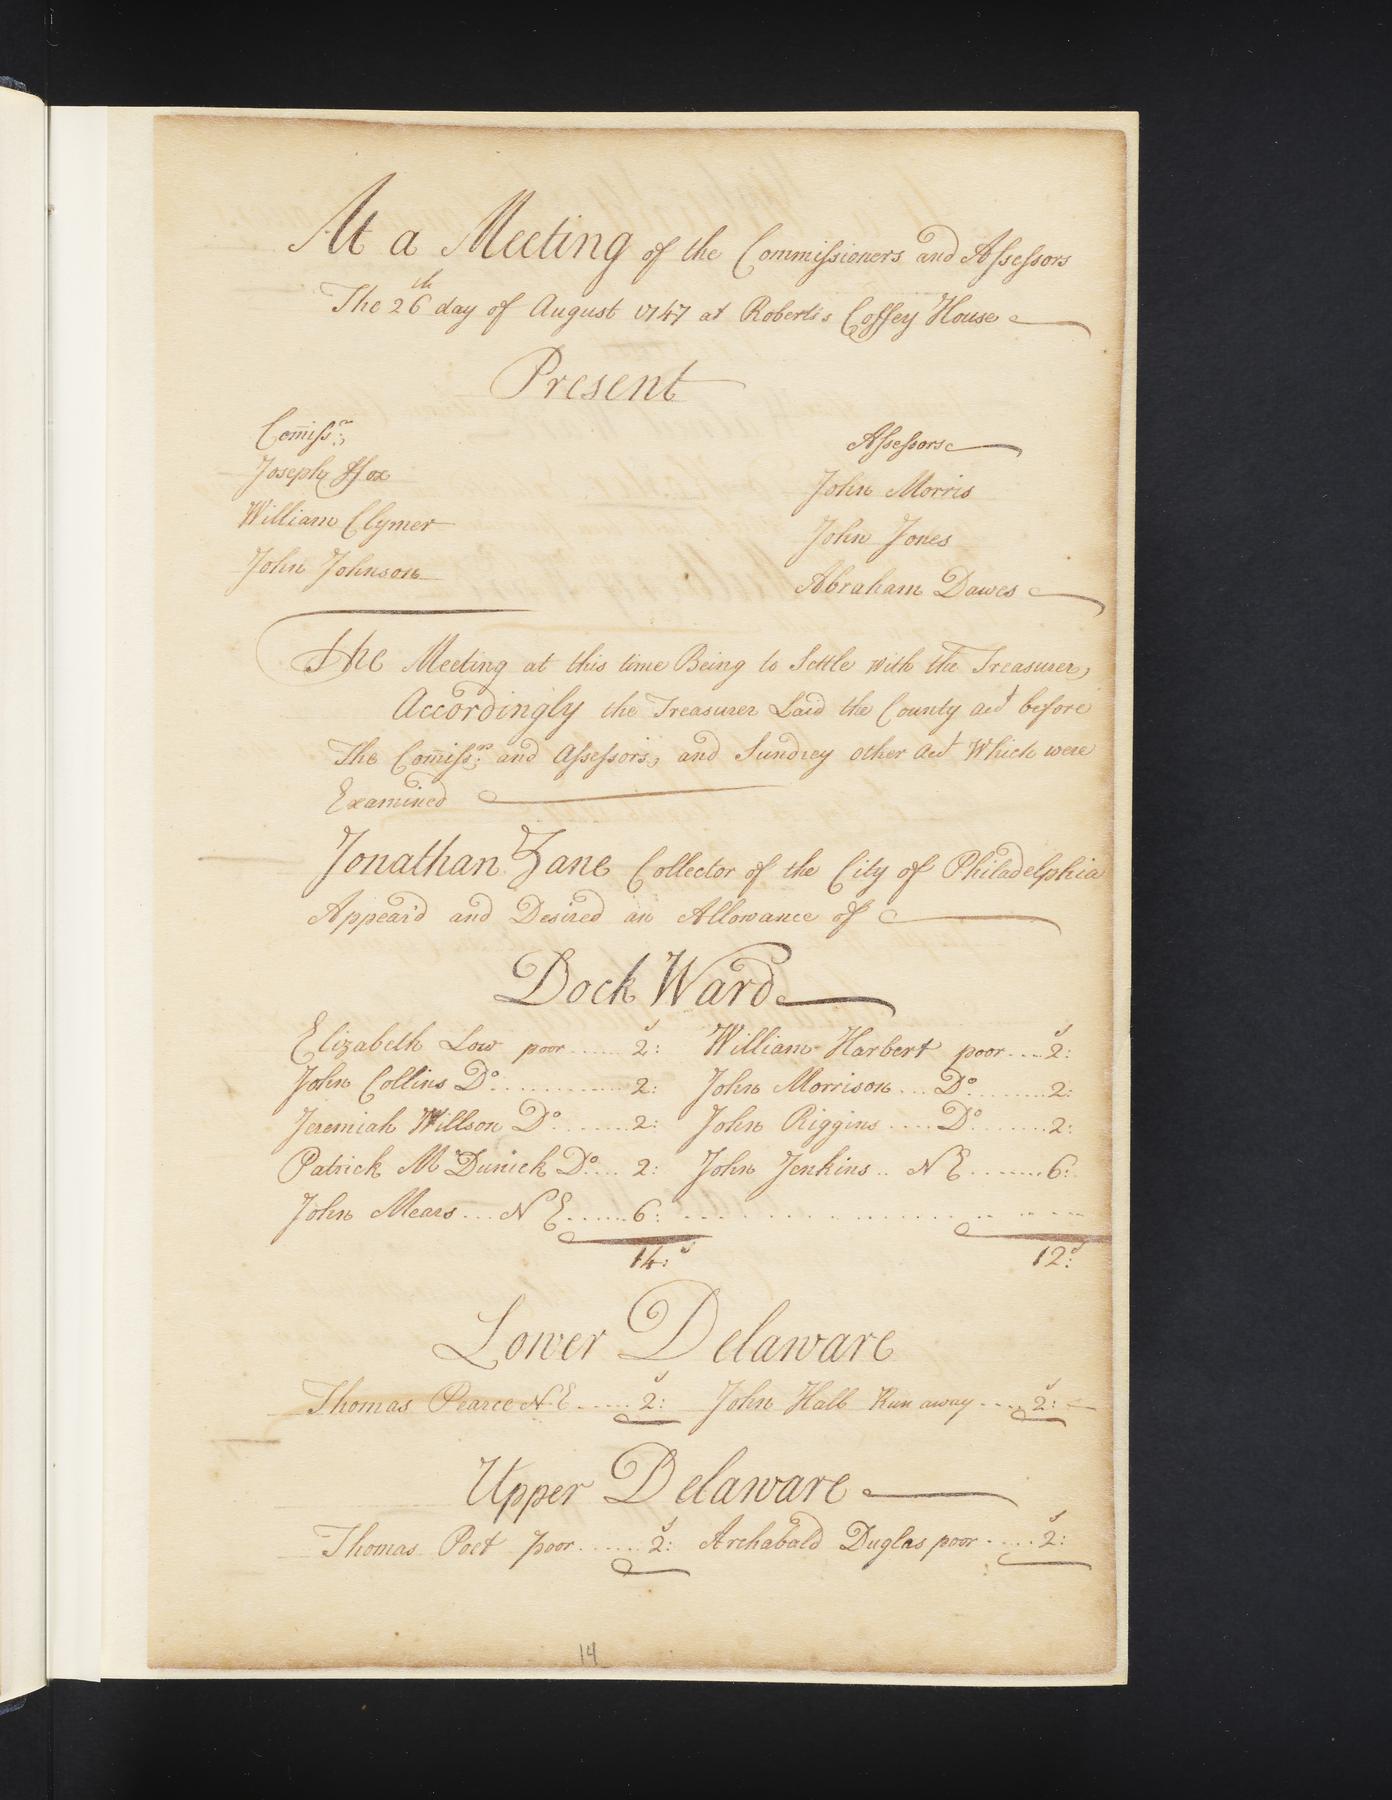 At a Meeting of the Commissioners and Assessors
The 26th day of August 1747 at Roberts's Coffey House
Present
Comissrs:
Assessors
Joseph ffox
John Morris
William Clymer
John Jones
John Johnson
Abraham Dawes
The Meeting at this time Being to Settle with the Treasurer,
Accordingly the Treasurer Laid the County acct before
The Comissrs: and Assessors, and Sundrey other acct Which were
Examined
Jonathan Zane Collector of the City of Philadelphia
Appear'd and Desired an Allowance of
Dock Ward
Elizabeth Low poor ...... 2s: William Harbert poor .... 2s:
John Collins Do. ............ 2: John Morrison ... Do. ........ 2:
Jeremiah Willson Do ....... 2: John Riggins .... Do ....... 2:
Patrick Mc Dunick Do .... 2: John Jenkins .. N E ....... 6:
John Mears ... N E ...... 6:
14:s 12s:
Lower Delaware
Thomas Pearce N E ..... 2s: John Hall Run away .... 2s:
Upper Delaware
Thomas Poet poor ...... 2s: Archabald Duglas poor ..... 2s:
14